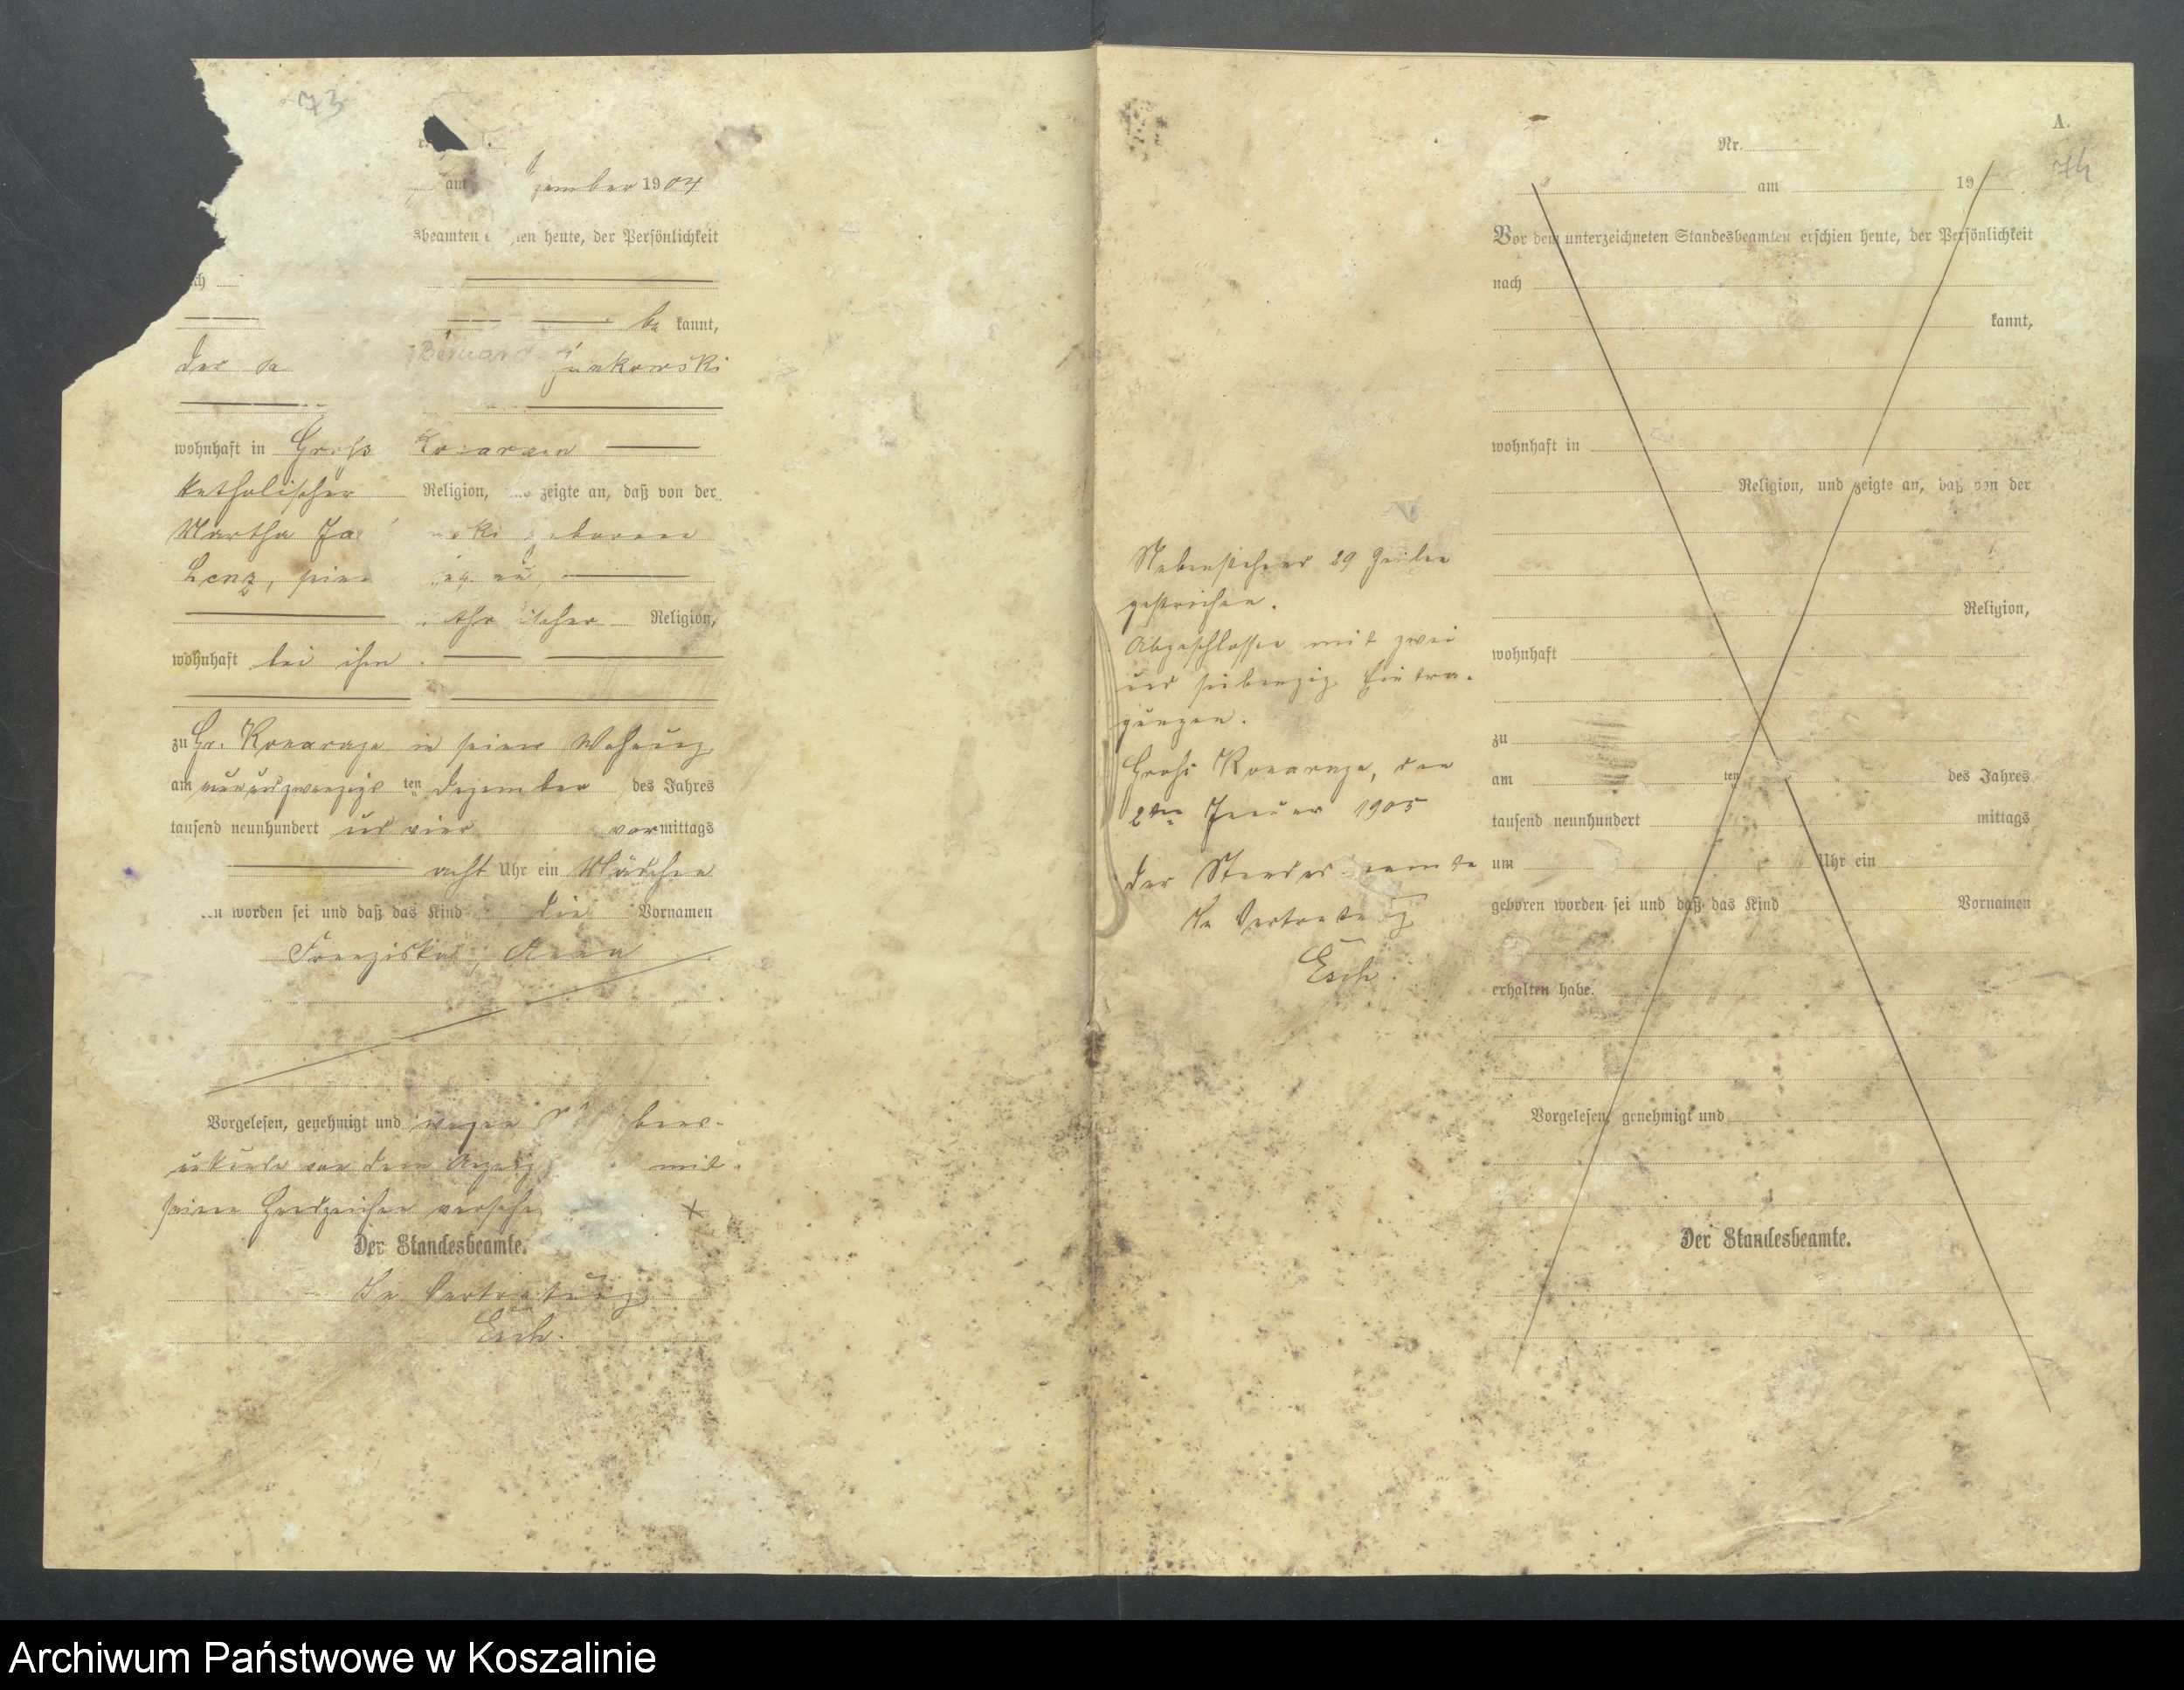 73
am zember 1904
sbeamten heute, der Persönlichkeit
ch
be kannt,
der Bernard
wohnhaft in Groß Konarzen
katholischer Religion, zeigte an, daß von der
Martha Ja ski geborene
Lenz, seine
Religion,
wohnhaft bei ihm
zu Gr. Konarzyn in seiner Wohnung
am neunundzwanzigs ten Dezember des Jahres
tausend neunhundert und vier vormittags
acht Uhr ein Mädchen
worden sei und daß das Kind die Vornamen
Franziska, Anna
Vorgelesen, genehmigt und wegen
von dem mit
seinem Handzeichen versehen
Der Standesbeamte.
In Vertretung
Esch.
Nebenstehend 29 Zeilen
gestrichen.
Abgeschlossen mit zwei
und siebenzig Eintra-
gungen.
Groß Konarzyn, den
2ten Januar 1905
Der Standesbeamte
In Vertretung
Esch.
A.
74
Nr.
am 19
Vor dem unterzeichneten Standesbeamten erschien heute, der Persönlichkeit
nach
kannt,
wohnhaft in
Religion, und zeigte an, daß von der
Religion,
wohnhaft
zu
am ten des Jahres
tausend neunhundert mittags
um Uhr ein
geboren worden sei und daß das Kind Vornamen
erhalten habe.
Vorgelesen, genehmigt und
Der Standesbeamte.
Archiwum Państwowe w Koszalinie